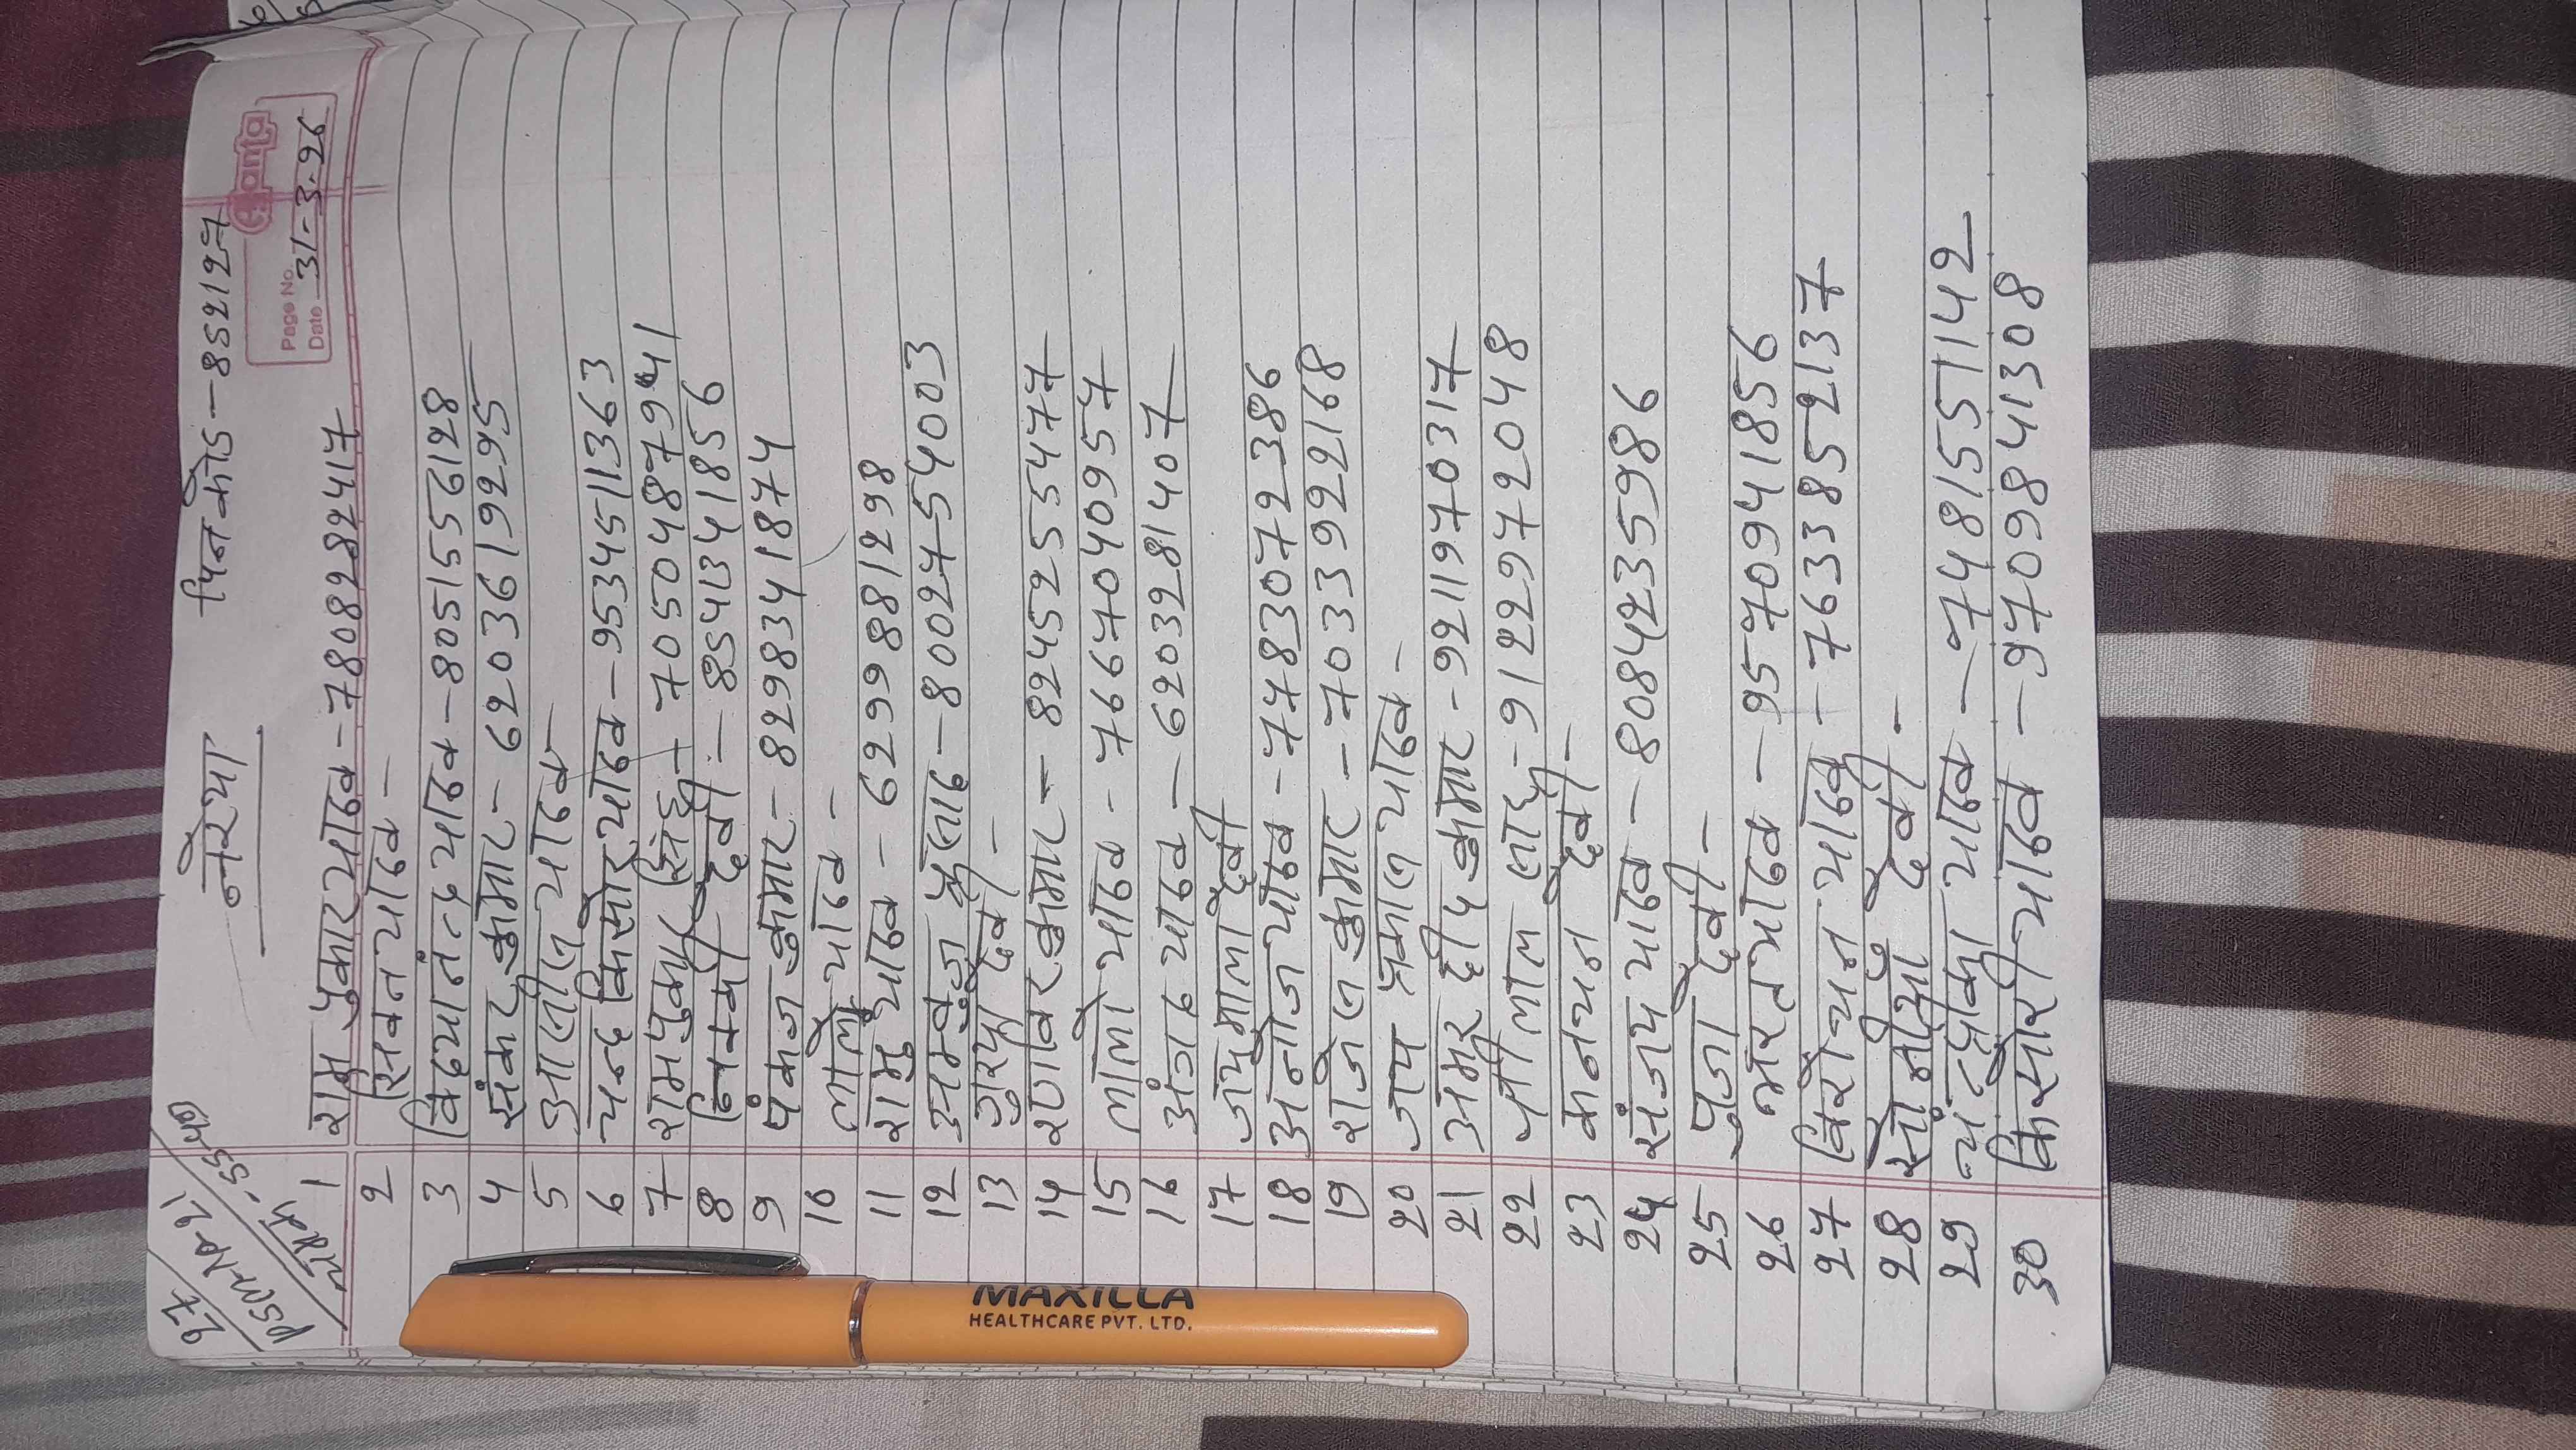 नेरया पिन कोड - 852127
Page No.
Date 31-3-26
1 राम पुकार यादव - 7808282417
2 सिवन यादव -
3 विद्यानंद यादव - 8051556128
4 संकर कुमार - 6203619295
5 आलील यादव
6 चन्द किसोर यादव - 9534511363
7 रामपुकार सिंह - 7050487941
8 देवी - 8541341856
9 पंकज कुमार - 8298341874
10 लालो यादव -
11 रामु यादव - 6299881298
12 - 8002754003
13 देवी -
14 रणविर कुमार - 8245255477
15 लालो यादव - 7667040957
16 अंगद यादव - 6203281407
17 जयमाला देवी
18 अनोज यादव - 7483072386
19 राजेस कुमार - 7033922168
20 जय प्रकाल यादव -
21 अमर दीप कुमार - 9211970317
22 लाल साह - 9122972048
23 देवी -
24 संजय यादव - 8084235986
25 पुजा देवी -
26 भरत यादव - 9570941856
27 यादव - 7633852137
28 देवी -
29 यादव - 7481551142
30 किसोरी यादव - 9709841308
MAXILLA
HEALTHCARE PVT. LTD.